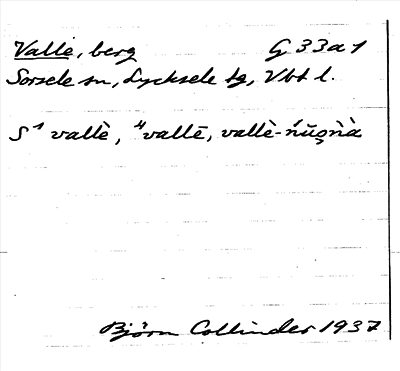 Valle, berg G 33a1
Sorsele sn, Lycksele tg, Vbt l.
S¹ vallè, ⁴vallē, vallè-ńŭǫńà
Björn Collinder 1937